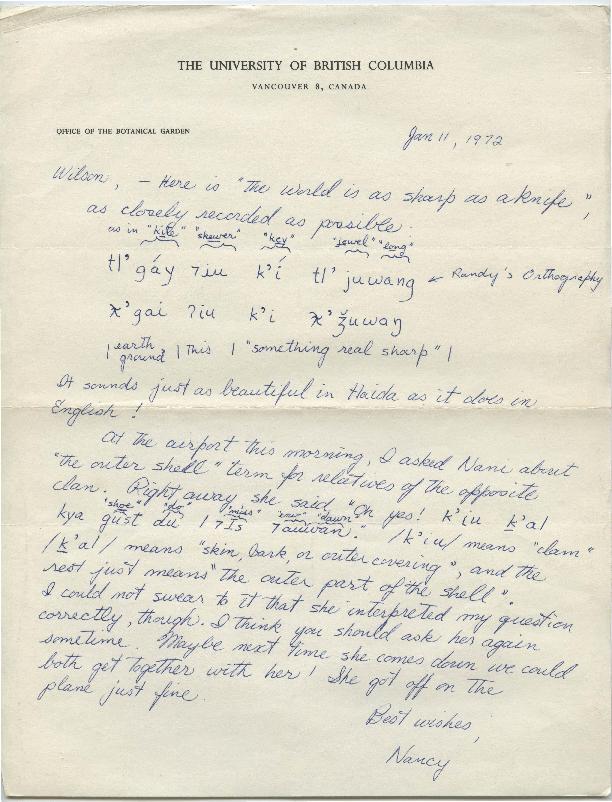 THE UNIVERSITY OF BRITISH COLUMBIA
VANCOUVER 8, CANADA
OFFICE OF THE BOTANICAL GARDEN
Jan 11, 1972
Wilson, – Here is "the world is as sharp as a knife",
as closely recorded as possible:
as in "kite" "skewer" "key" "jewel" "long"
tl' gáy ʔiu k'í tl' juwang ← Randy's Orthography
ƛ'gai ʔiu k'i ƛ' ǯuwaŋ
| earth ground | this | "something real sharp" |
It sounds just as beautiful in Haida as it does in
English!
At the airport this morning, I asked Nani about
"the outer shell" term for relatives of the opposite
clan. Right away she said "Oh yes! k'iu k̲'al
"shoe" "do" "miss" "dawn"
kya gust du ʔis ʔauwan." /k'iu/ means "clam"
/k̲'al/ means "skin, bark, or outer covering", and the
rest just means "the outer part of the shell".
I could not swear to it that she interpreted my question
correctly, though. I think you should ask her again
sometime. Maybe next time she comes down we could
both get together with her! She got off on the
plane just fine.
Best wishes,
Nancy